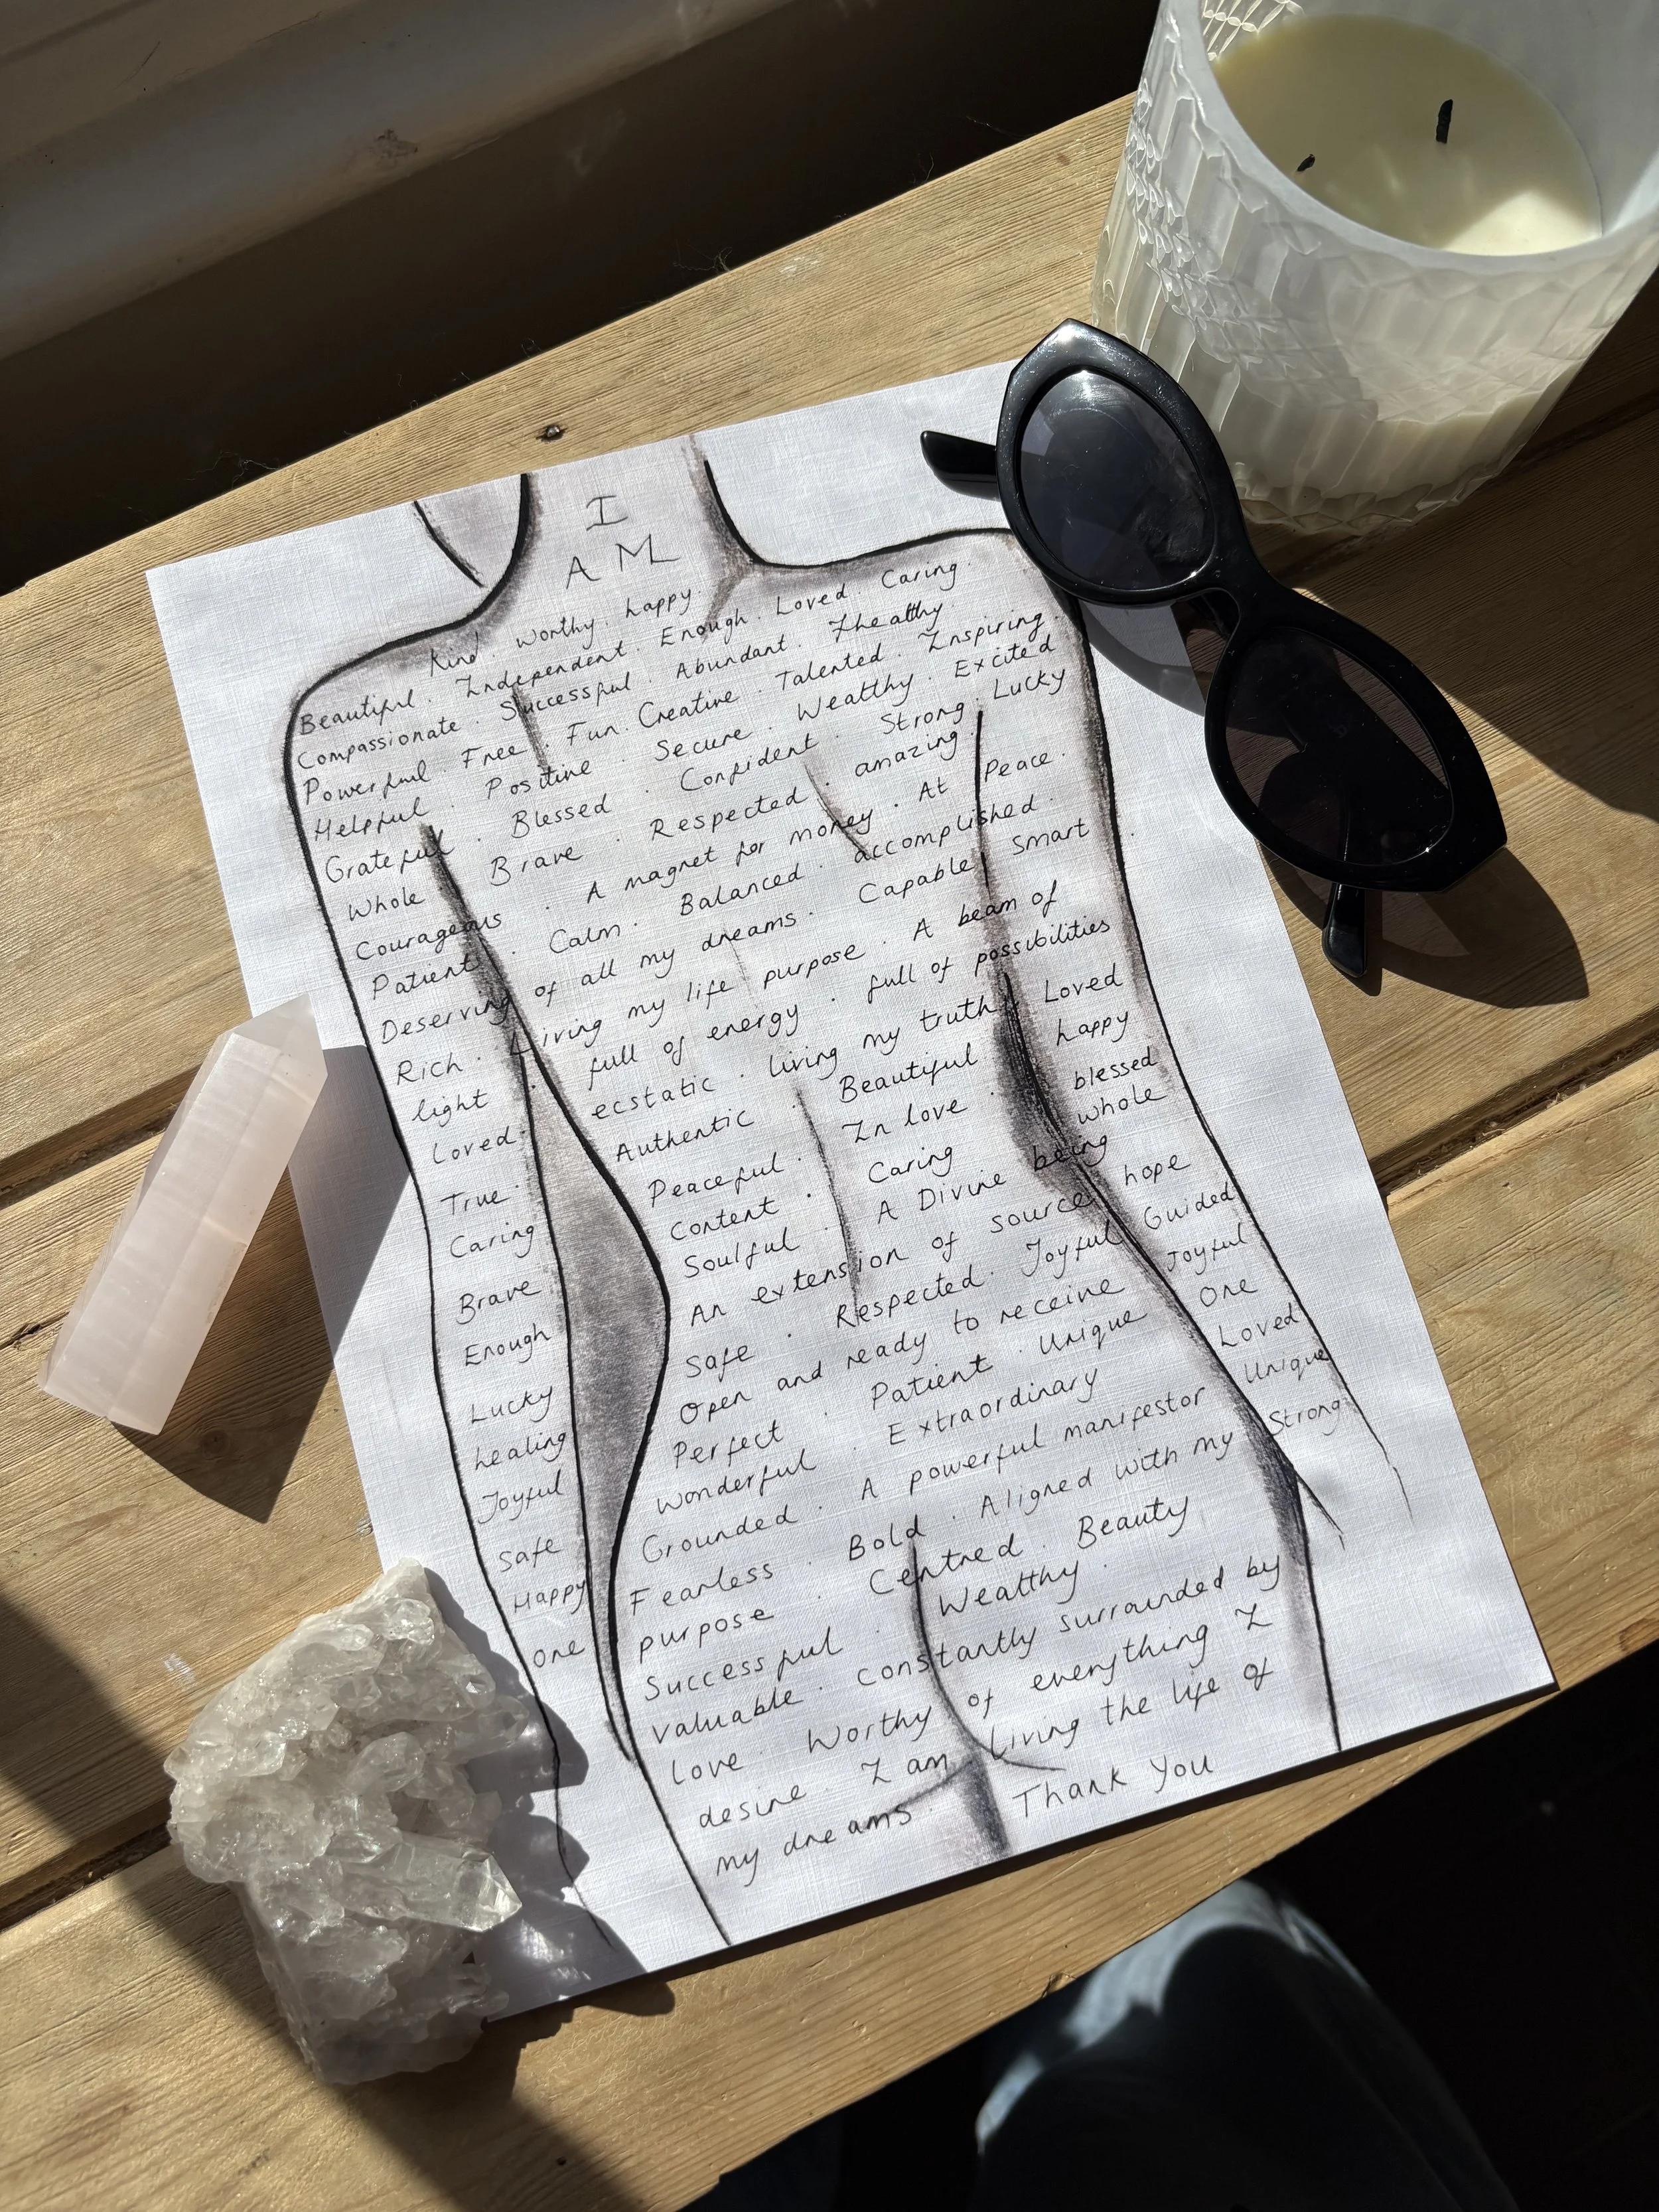 I
AM
Kind. Worthy. happy.
Beautiful. Independent. Enough. Loved. Caring.
Compassionate. Successful. Abundant. Healthy.
Powerful. Free. Fun. Creative. Talented. Inspiring.
Helpful. Positive. Secure. Wealthy. Excited
Grateful. Blessed. Confident. Strong. Lucky
Whole Brave. Respected. amazing.
Courageous. A magnet for money. At Peace.
Patient. Calm. Balanced. accomplished.
Deserving of all my dreams. Capable Smart
Rich. Living my life purpose. A beam of
light. full of energy. full of possibilities
Loved. ecstatic. living my truth. Loved
True. Authentic. Beautiful happy
Caring Peaceful. In love. blessed
Brave Content. Caring whole
Enough Soulful. A Divine being
Lucky An extension of source hope
healing Safe. Respected. Joyful Guided
Joyful Open and ready to receive Joyful
Safe Perfect. Patient. Unique One
Happy Wonderful. Extraordinary Loved
One Grounded. A powerful manifestor Unique
Fearless. Bold. Aligned with my Strong
purpose. Centred. Beauty
Successful. Wealthy.
valuable. constantly surrounded by
love. Worthy of everything I
desire. I am living the life of
my dreams. Thank You